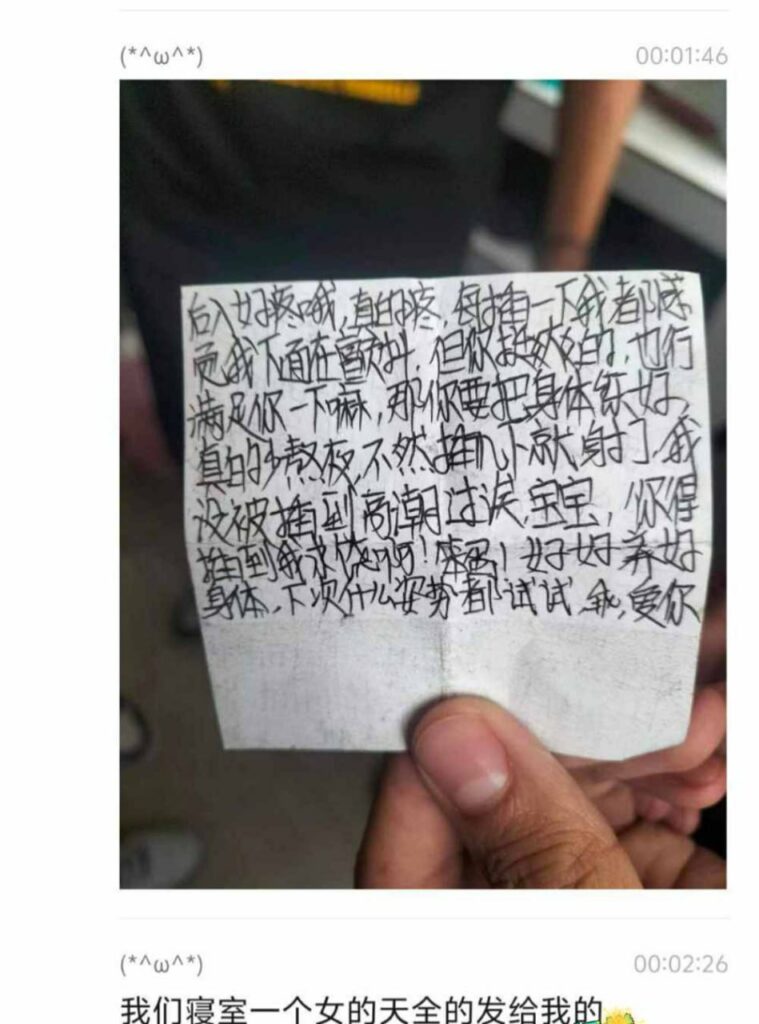 (*^ω^*) 00:01:46
后入好疼哦,真的疼,每插一下我都感
觉我下面在颤抖,但你挺爽的,也行
满足你一下嘛,那你要把身体练好,
真的少熬夜,不然插几下就射了,我
没被插到高潮过诶,宝宝,你得
插到我求饶啊!来吗!好好养好
身体,下次什么姿势都试试,我,爱你
(*^ω^*) 00:02:26
我们寝室一个女的天全的发给我的